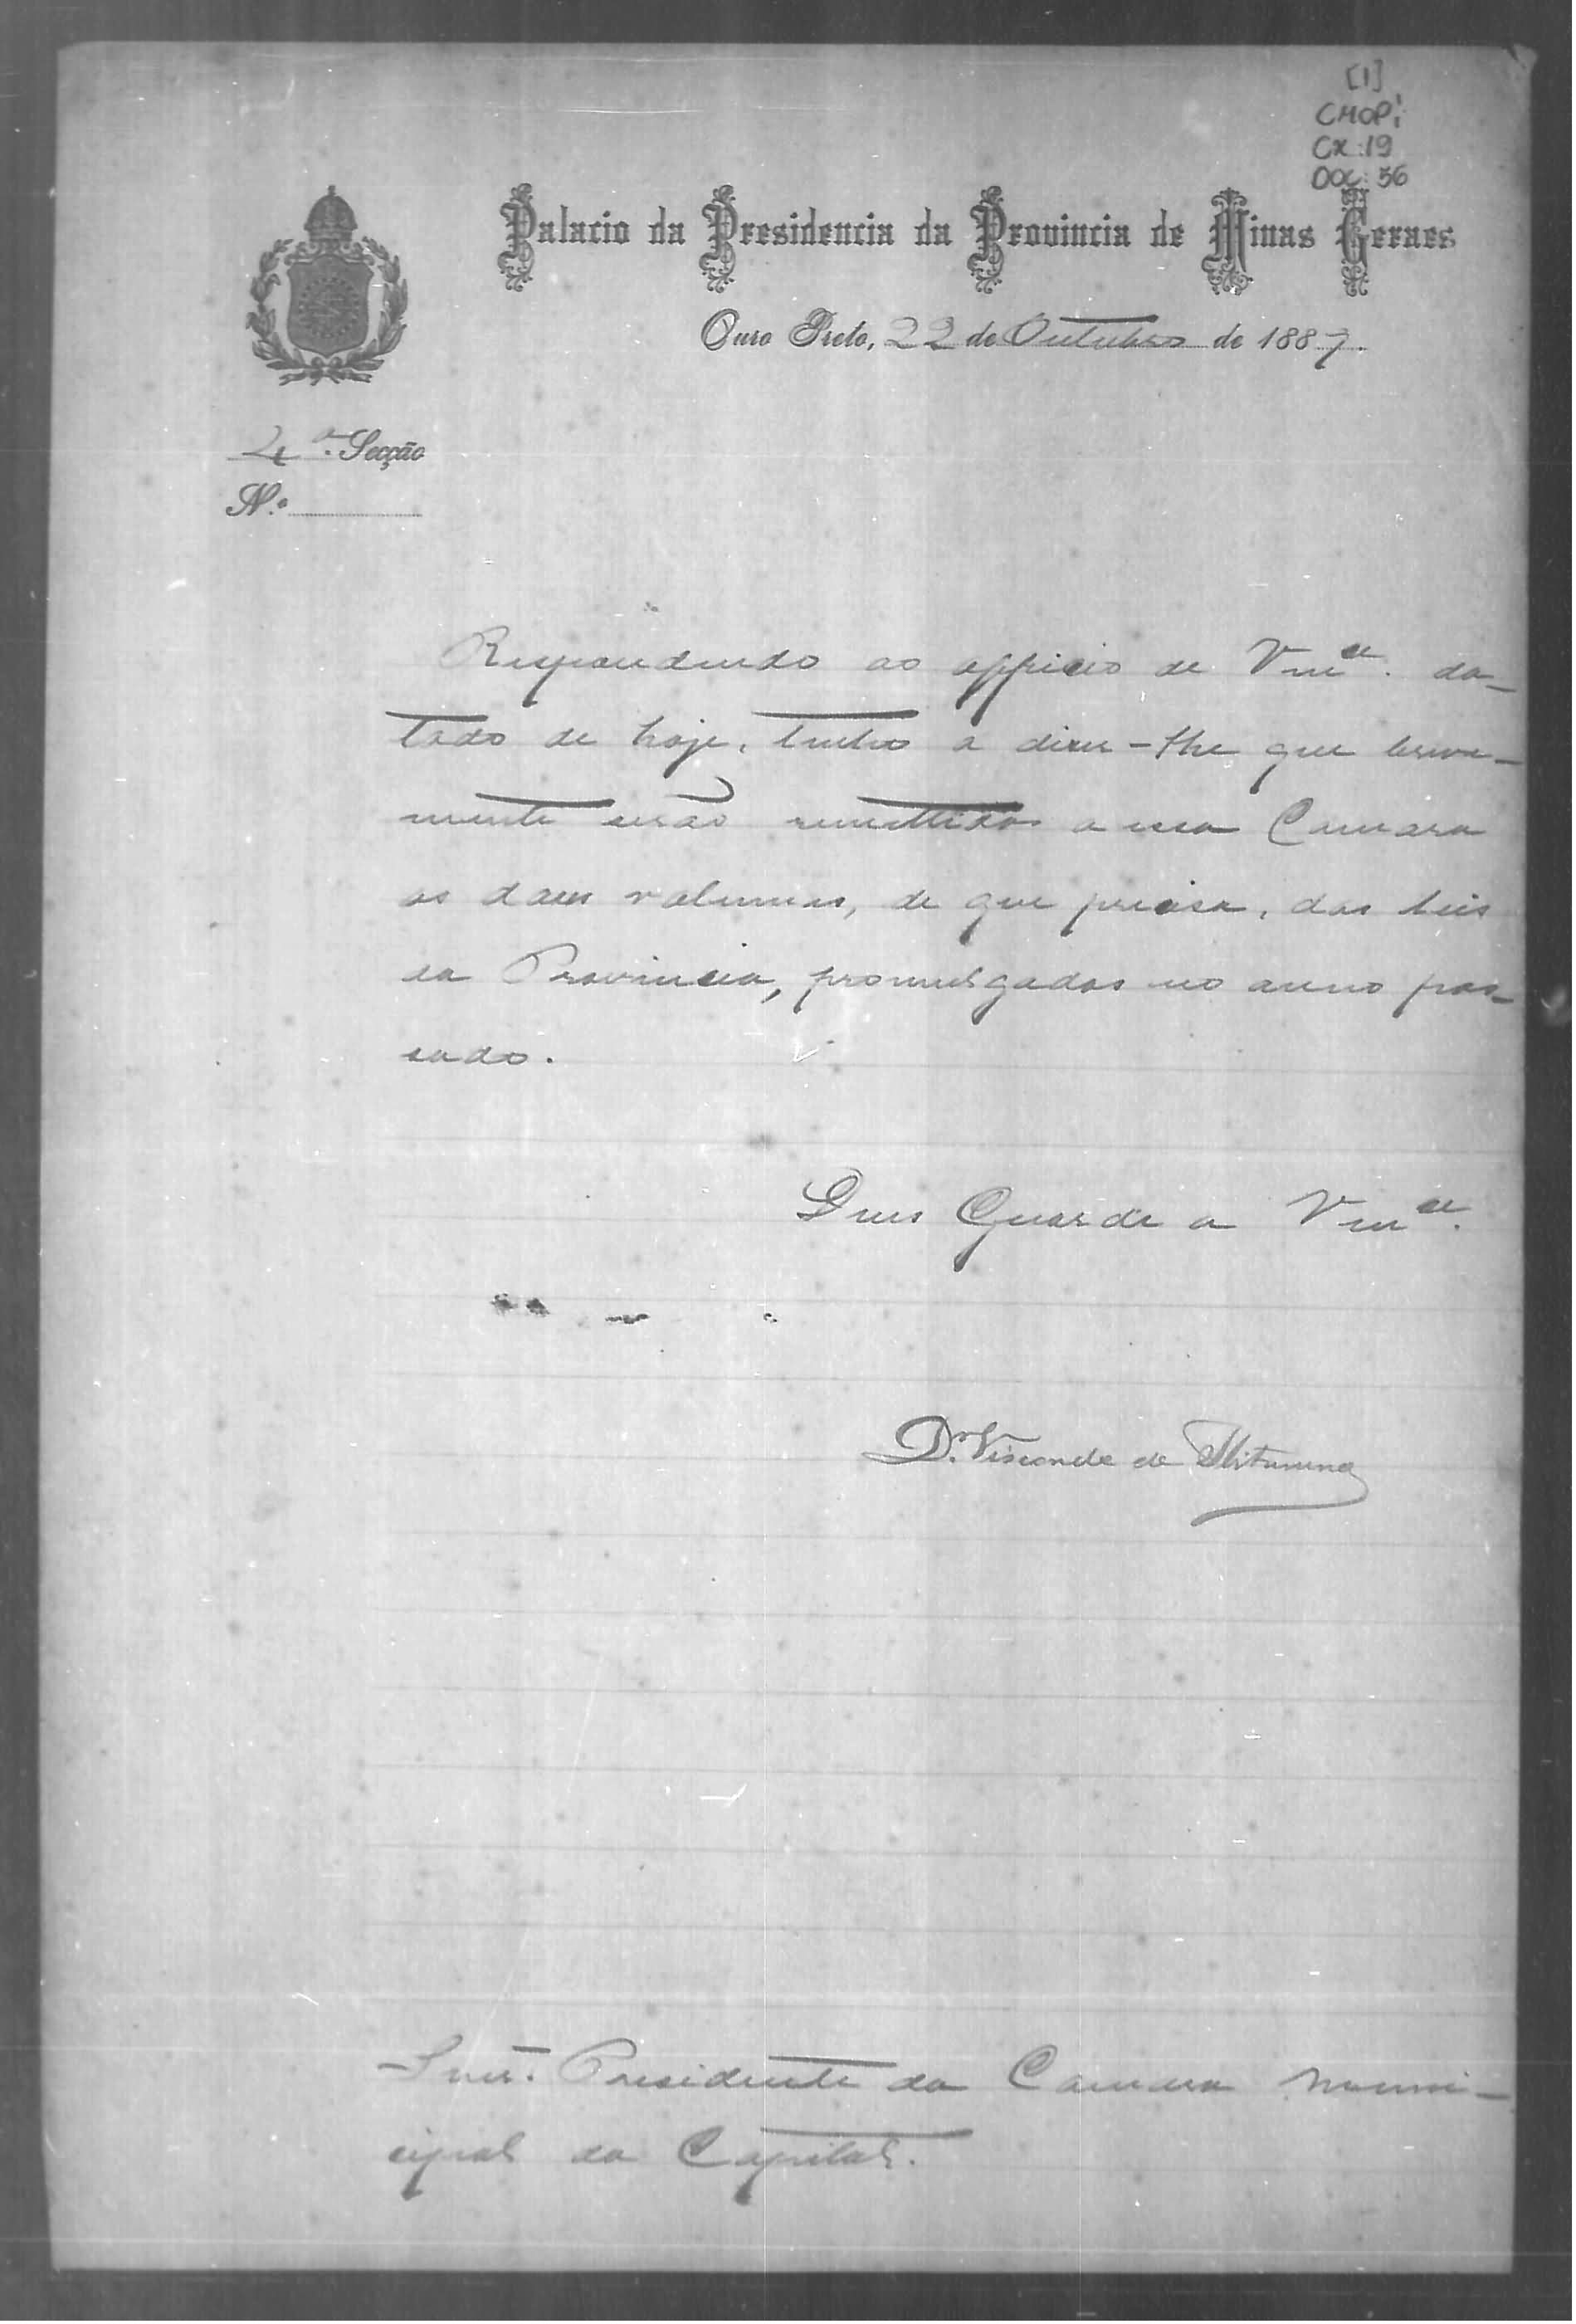 [1]
CMOPi
Cx: 19
DOC: 56
Palacio da Presidencia da Provincia de Minas Geraes
Ouro Preto, 22 de Outubro de 1887.
4ª. Secção
N.º
Respondendo ao officio de Vmce. da-
tado de hoje, tenho a dizer-lhe que breve-
mente serão remettidos a essa Camara
os dous volumes, de que precisa, das leis
da Provincia, promulgadas no anno pas-
sado.
Deus Guarde a Vmce.
Dr. Visconde de Ibituruna
Snr. Presidente da Camara Muni-
cipal da Capital.